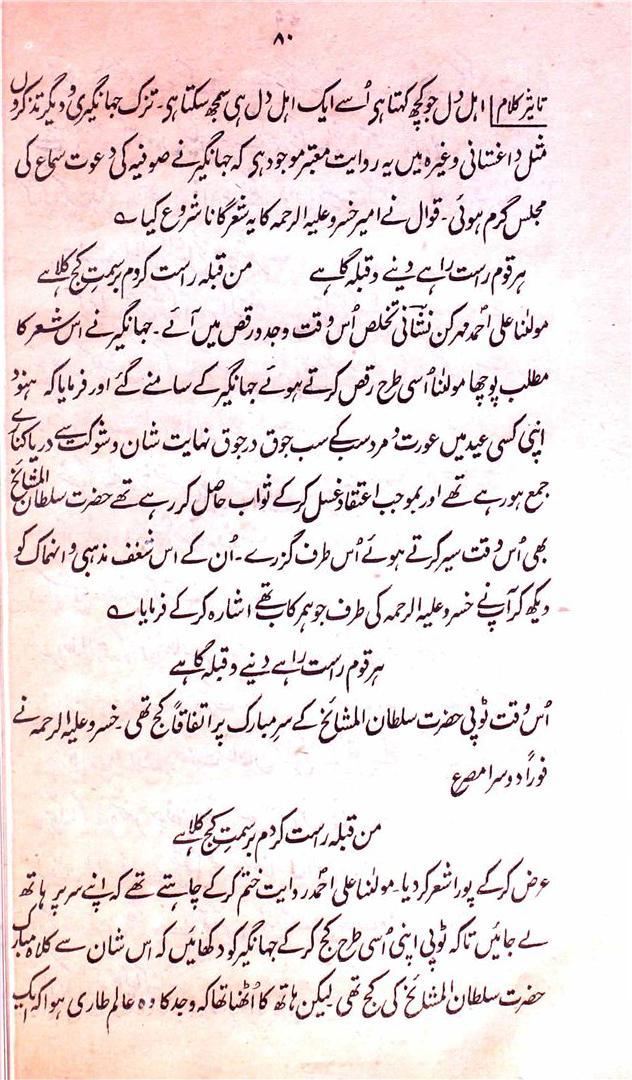 ۸۰
تاثیر کلام اہل دل جو کچھ کہتا ہی اُسے ایک اہل دل ہی سمجھ سکتا ہی۔ تزک جہانگیری و دیگر تذکروں
مثل داغستانی وغیرہ میں یہ روایت معتبر موجود ہی کہ جہانگیر نے صوفیہ کی دعوت سماع کی
مجلس گرم ہوئی۔ قوال نے امیر خسرو علیہ الرحمہ کا یہ شعر گانا شروع کیا ؎
ہر قوم راست راہے دینے و قبلہ گاہے من قبلہ راست کردم بر سمت کج کلاہے
مولٰنا علی احمد مہرکن نشانی تخلص اُس وقت وجد و رقص میں آئے۔ جہانگیر نے اس شعر کا
مطلب پوچھا مولٰنا اُسی طرح رقص کرتے ہوئے جہانگیر کے سامنے گئے اور فرمایا کہ ہنود
اپنی کسی عید میں عورت و مرد سب کے سب جوق در جوق نہایت شان و شوکت سے دریا کنارے
جمع ہو رہے تھے اور بموجب اعتقاد غسل کرکے ثواب حاصل کر رہے تھے حضرت سلطان المشائخ
بھی اُس وقت سیر کرتے ہوئے اُس طرف گزرے۔ اُن کے اس شغف مذہبی و انہماک کو
دیکھ کر آپ نے خسرو علیہ الرحمہ کی طرف جو ہمرکاب تھے اشارہ کرکے فرمایا ؎
ہر قوم راست راہے دینے و قبلہ گاہے
اُس وقت ٹوپی حضرت سلطان المشائخ کے سر مبارک پر اتفاقاً کج تھی۔ خسرو علیہ الرحمہ نے
فوراً دوسرا مصرع
من قبلہ راست کردم بر سمت کج کلاہے
عرض کرکے پورا شعر کردیا۔ مولٰنا علی احمد روایت ختم کرکے چاہتے تھے کہ اپنے سر پر ہاتھ
لے جائیں تاکہ ٹوپی اپنی اُسی طرح کج کرکے جہانگیر کو دکھائیں کہ اس شان سے کلاہ مبارک
حضرت سلطان المشائخ کی کج تھی لیکن ہاتھ کا اُٹھنا تھا کہ وجد کا وہ عالم طاری ہوا کہ ایک